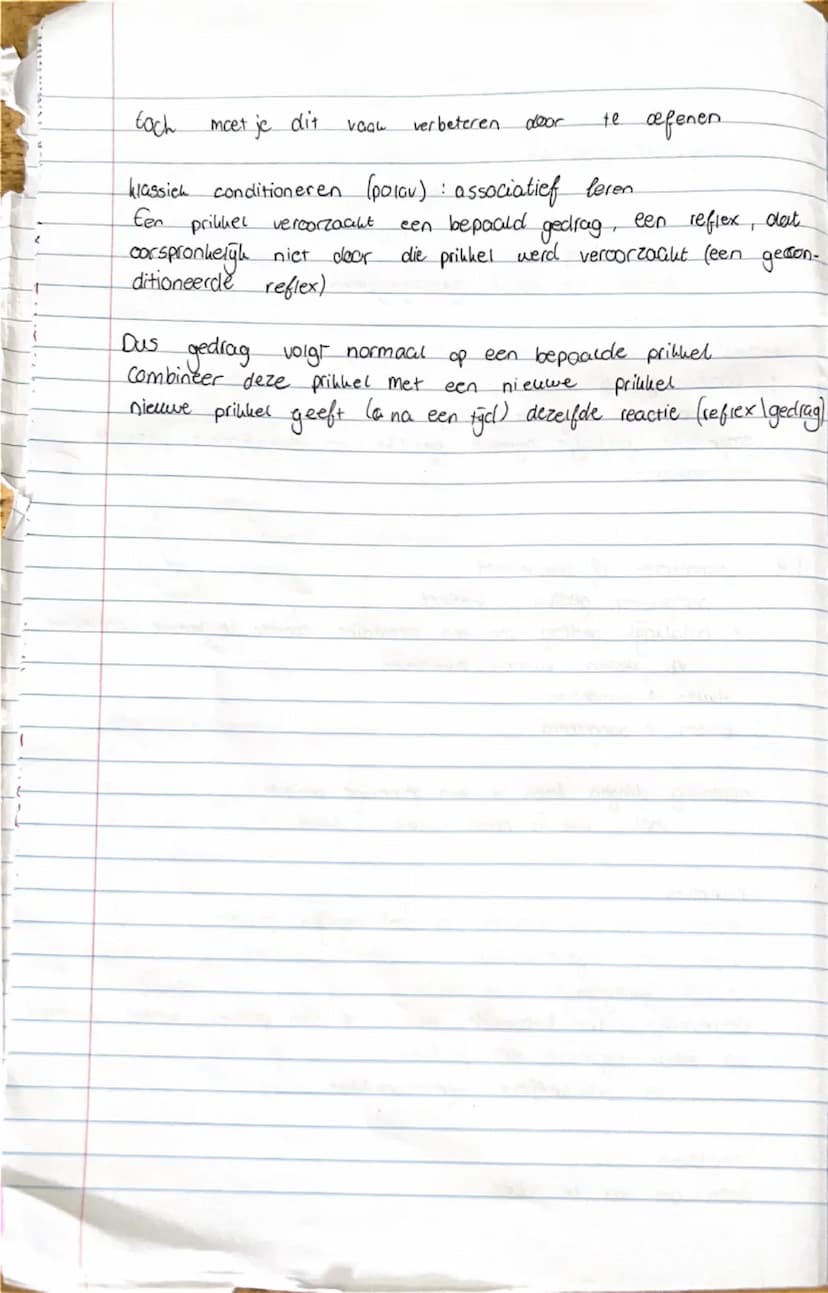 toch moet je dit vaak verbeteren door te oefenen
klassiek conditioneren (polav) : associatief leren
Een prikkel veroorzaakt een bepaald gedrag, een reflex, dat
oorspronkelijk niet door die prikkel werd veroorzaakt (een gecon-
ditioneerde reflex)
Dus gedrag volgt normaal op een bepaalde prikkel
Combineer deze prikkel met een nieuwe prikkel
nieuwe prikkel geeft (a na een tijd) dezelfde reactie (reflex\gedrag)